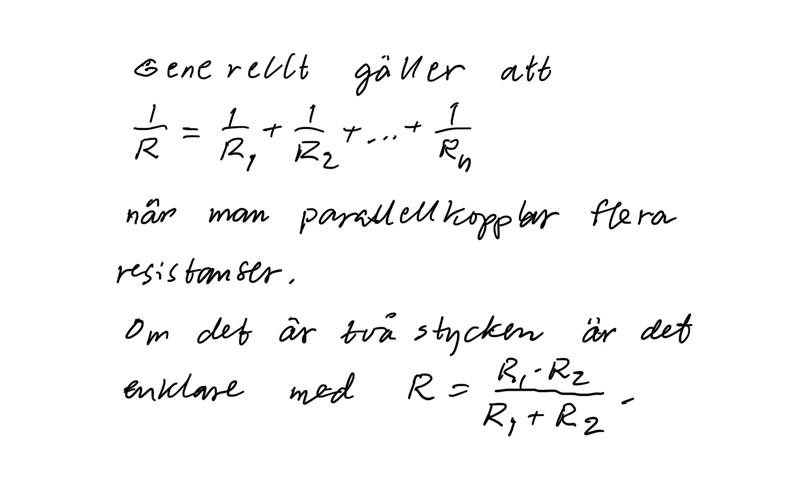 Generellt gäller att
1/R = 1/R₁ + 1/R₂ + ... + 1/Rₙ
när man parallellkopplar flera
resistanser.
Om det är två stycken är det
enklare med R = (R₁·R₂)/(R₁ + R₂).